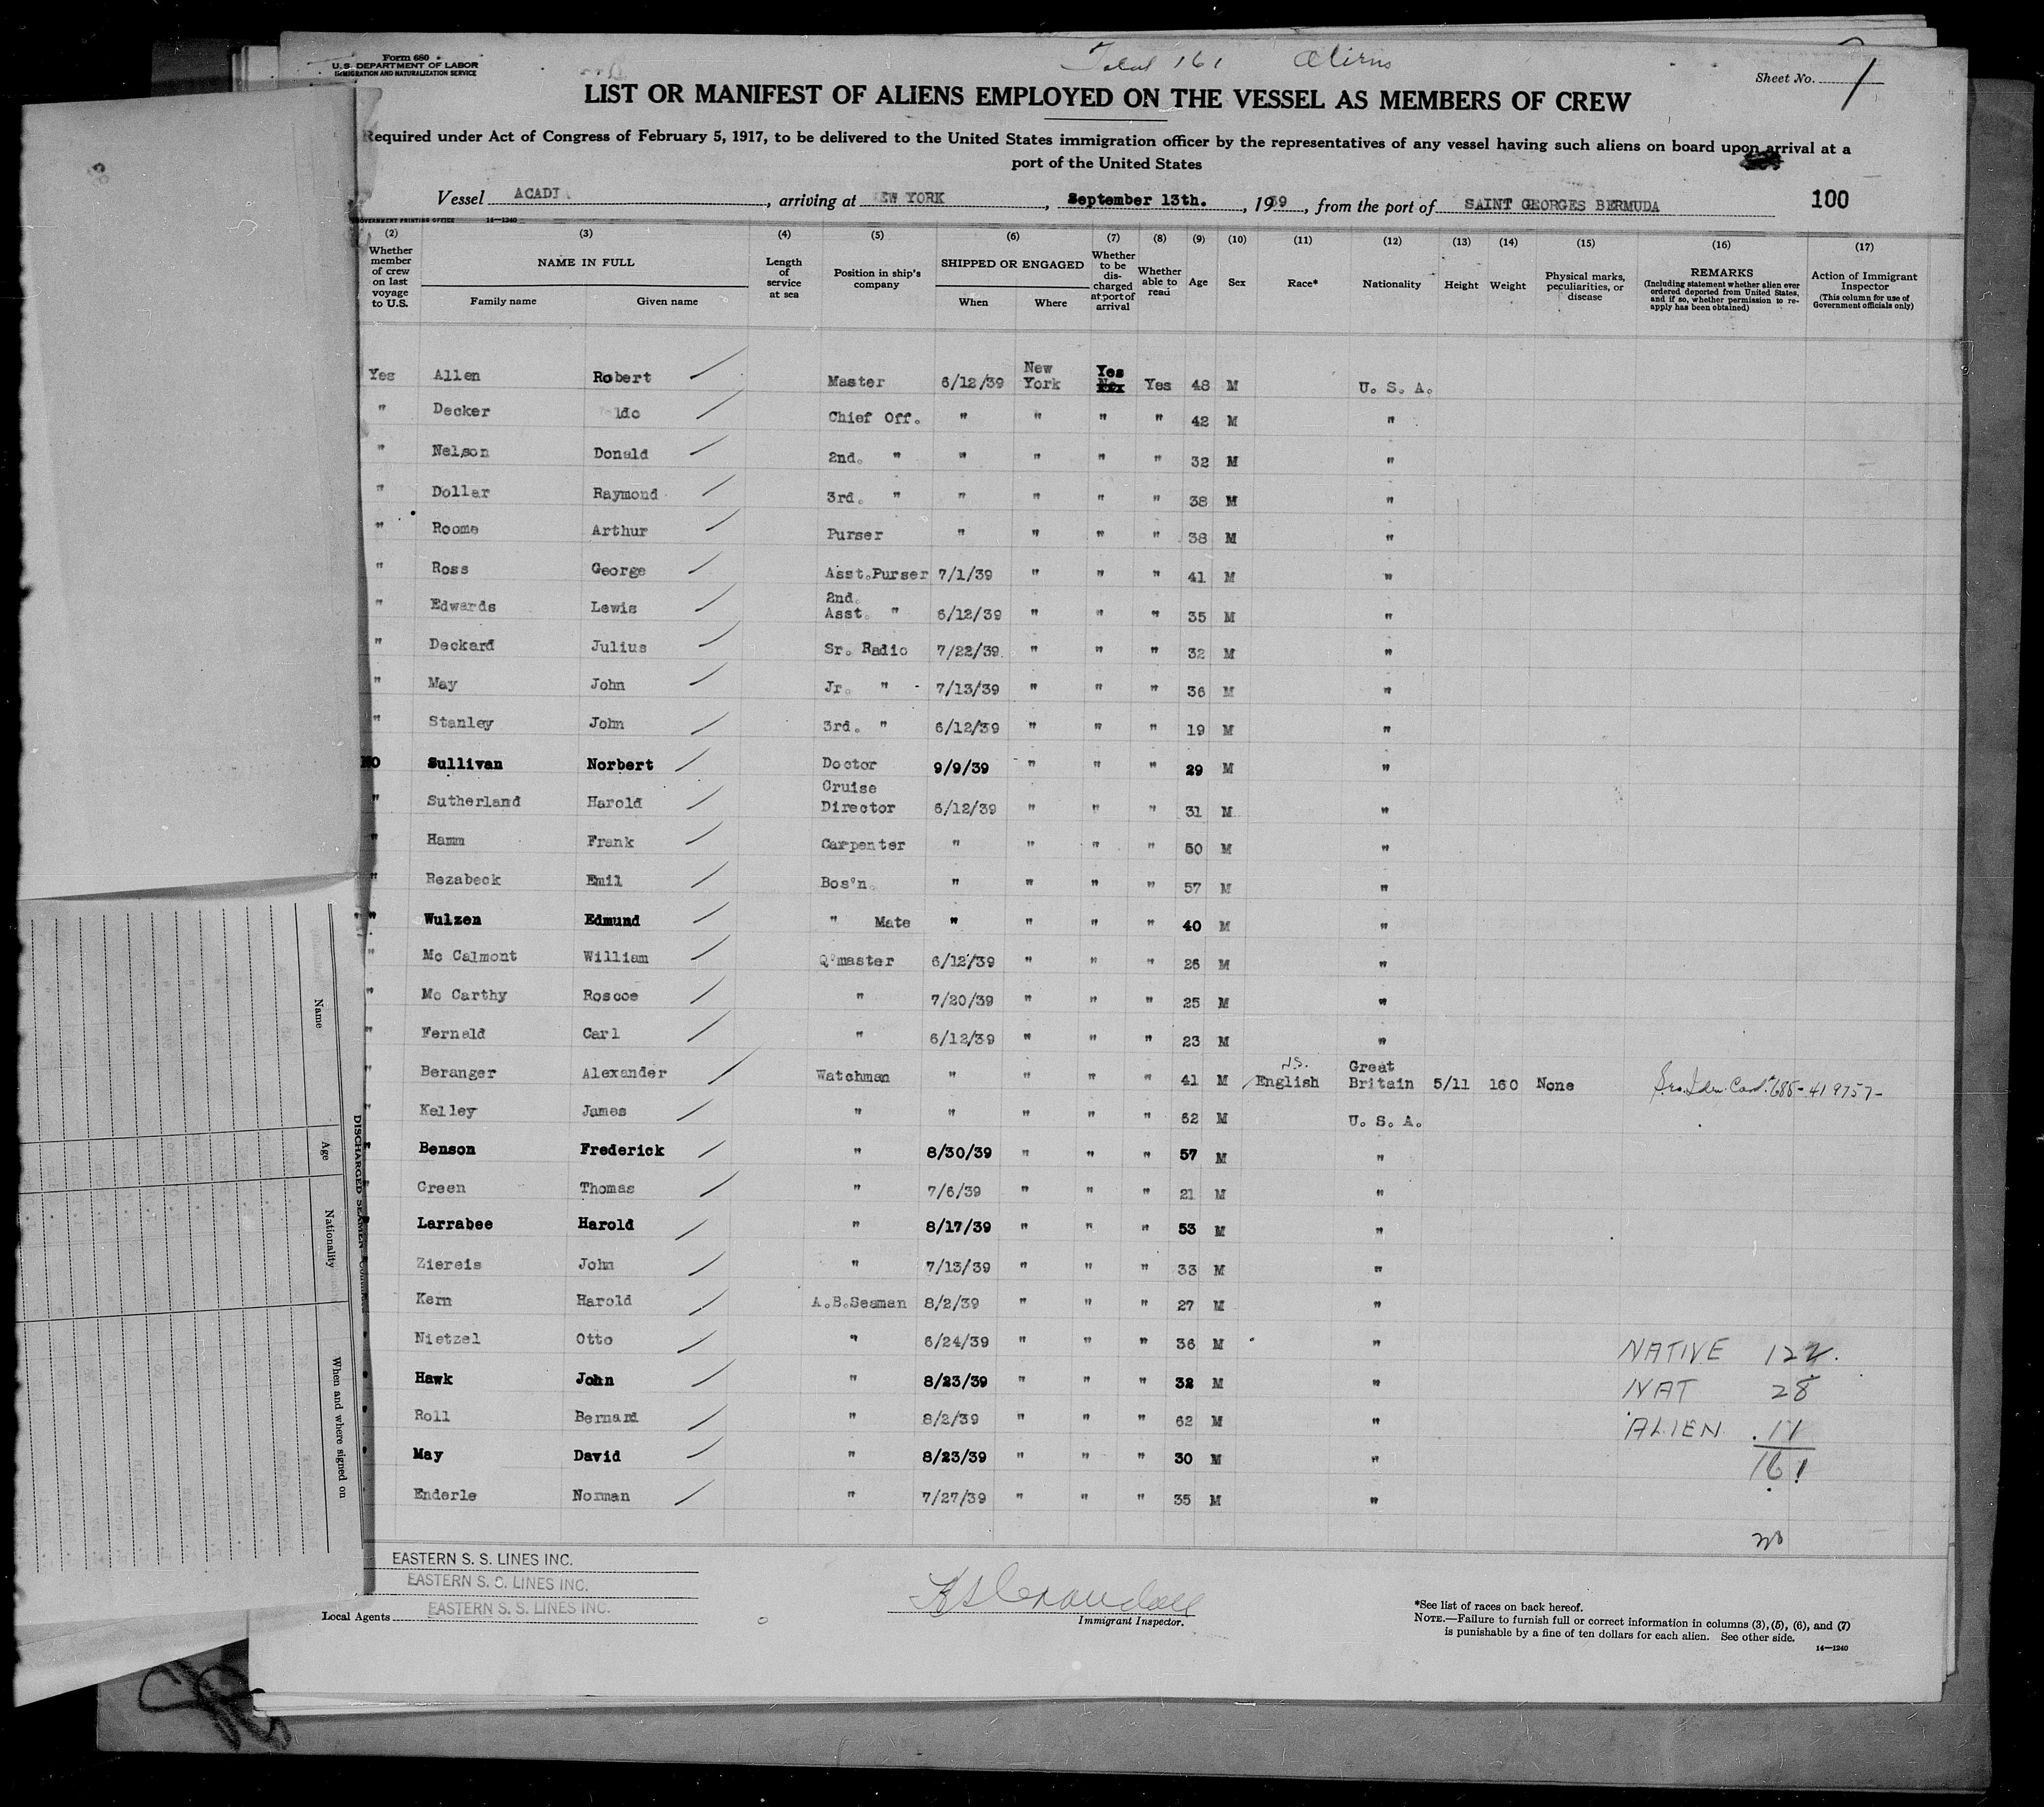 Form 680
U.S. DEPARTMENT OF LABOR
IMMIGRATION AND NATURALIZATION SERVICE
Total 161 Aliens
Sheet No. 1
LIST OR MANIFEST OF ALIENS EMPLOYED ON THE VESSEL AS MEMBERS OF CREW
Required under Act of Congress of February 5, 1917, to be delivered to the United States immigration officer by the representatives of any vessel having such aliens on board upon arrival at a
port of the United States
Vessel ACADI, arriving at EW YORK, September 13th., 1939, from the port of SAINT GEORGES BERMUDA 100
GOVERNMENT PRINTING OFFICE 14—1240
(2) (3) (4) (5) (6) (7) (8) (9) (10) (11) (12) (13) (14) (15) (16) (17)
Whether member of crew on last voyage to U.S.
NAME IN FULL
Family name Given name
Length of service at sea
Position in ship's company
SHIPPED OR ENGAGED
When Where
Whether to be discharged at port of arrival
Whether able to read
Age
Sex
Race*
Nationality
Height
Weight
Physical marks, peculiarities, or disease
REMARKS
(Including statement whether alien ever ordered deported from United States, and if so, whether permission to reapply has been obtained)
Action of Immigrant Inspector
(This column for use of Government officials only)
Yes Allen Robert Master 6/12/39 New York Yes Yes 48 M U. S. A.
" Decker ldo Chief Off. " " " " 42 M "
" Nelson Donald 2nd. " " " " " 32 M "
" Dollar Raymond 3rd. " " " " " 38 M "
" Roome Arthur Purser " " " " 38 M "
" Ross George Asst.Purser 7/1/39 " " " 41 M "
" Edwards Lewis 2nd. Asst. " 6/12/39 " " " 35 M "
" Deckard Julius Sr. Radio 7/22/39 " " " 32 M "
" May John Jr. " 7/13/39 " " " 36 M "
" Stanley John 3rd. " 6/12/39 " " " 19 M "
NO Sullivan Norbert Doctor 9/9/39 " " " 29 M "
" Sutherland Harold Cruise Director 6/12/39 " " " 31 M "
" Hamm Frank Carpenter " " " " 50 M "
" Rezabeck Emil Bos'n. " " " " 57 M "
" Wulzen Edmund " Mate " " " " 40 M "
" Mc Calmont William Q'master 6/12/39 " " " 26 M "
" Mc Carthy Roscoe " 7/20/39 " " " 25 M "
" Fernald Carl " 6/12/39 " " " 23 M "
" Beranger Alexander Watchman " " " " 41 M English Great Britain 5/11 160 None
" Kelley James " " " " " 62 M U. S. A.
" Benson Frederick " 8/30/39 " " " 57 M "
" Green Thomas " 7/6/39 " " " 21 M "
" Larrabee Harold " 8/17/39 " " " 53 M "
Ziereis John " 7/13/39 " " " 33 M "
Kern Harold A.B.Seaman 8/2/39 " " " 27 M "
Nietzel Otto " 6/24/39 " " " 36 M "
Hawk John " 8/23/39 " " " 32 M "
Roll Bernard " 8/2/39 " " " 62 M "
May David " 8/23/39 " " " 30 M "
Enderle Norman " 7/27/39 " " " 35 M "
NATIVE 122.
NAT 28
ALIEN 11
161
EASTERN S. S. LINES INC.
EASTERN S. S. LINES INC.
Local Agents EASTERN S. S. LINES INC.
Immigrant Inspector.
*See list of races on back hereof.
NOTE.—Failure to furnish full or correct information in columns (3), (5), (6), and (7)
is punishable by a fine of ten dollars for each alien. See other side.
14—1240
Name
Age
Nationality
When and where signed on
DISCHARGED SEAMEN